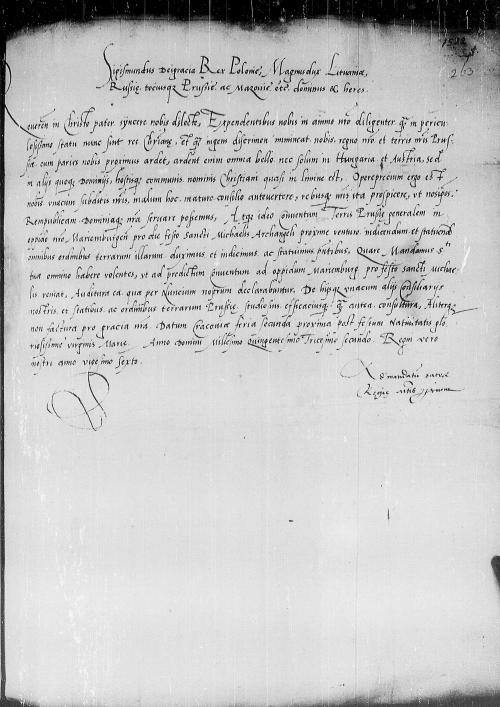 1532
Sigismundus Dei gracia Rex Polonie, Magnus dux Lituanie,
Russie, tociusq3 Prussie ac Mazovie etc. dominus & heres.
in Christo pater syncere nobis dilecte, Expendentibus nobis in animo nro diligenter, in pericu
losissimo statu nunc sint res Chriane, et in igem discrimen immineat nobis, regno nro et terris nris Prus-
sie, cum paries nobis proximus ardet, ardent enim omnia bello, nec solum in Hungaria et Austria, sed
in alijs quoq3 Dominijs, hostisq3 communis nominis Christiani quasi in limine est, Opereprecium ergo est
nobis unacum subditis nris, malum hoc maturo consilio antevertere, rebusq3 nris ita prospicere, ut nosipsos,
Rempublicam Dominiaq3 nra servare possemus, Atq3 ideo conventum Terris Prussie generalem in
oppido nro Marienburgen pro die festo Sancti Michaelis Archangeli proxime venturo indicendum et statuend
omnibus ordinibus terrarum illarum duximus et indicimus ac statuimus pntibus. Quare Mandamus
tua omnino habere volentes, ut ad predictum conventum ad oppidum Marienburg pro festo sancti Michae-
lis veniat, Auditura ea qua per Nuncium nostrum declarabuntur. De hijsq3 unacum alijs Consiliarijs
nostris, et statibus ac ordinibus terrarum Prussie, studiosius efficaciusq3 antea, consultura, Aliterq3
non factura pro gracia nra. Datum Cracovie feria secunda proxima post festum Nativitatis glo
riosissime virginis Marie. Anno Domini Millesimo Quingentesimo Tricesimo secundo. Regni vero
nostri anno vigesimo sexto.
Ad mandatum sacre
Regie mtis proprium